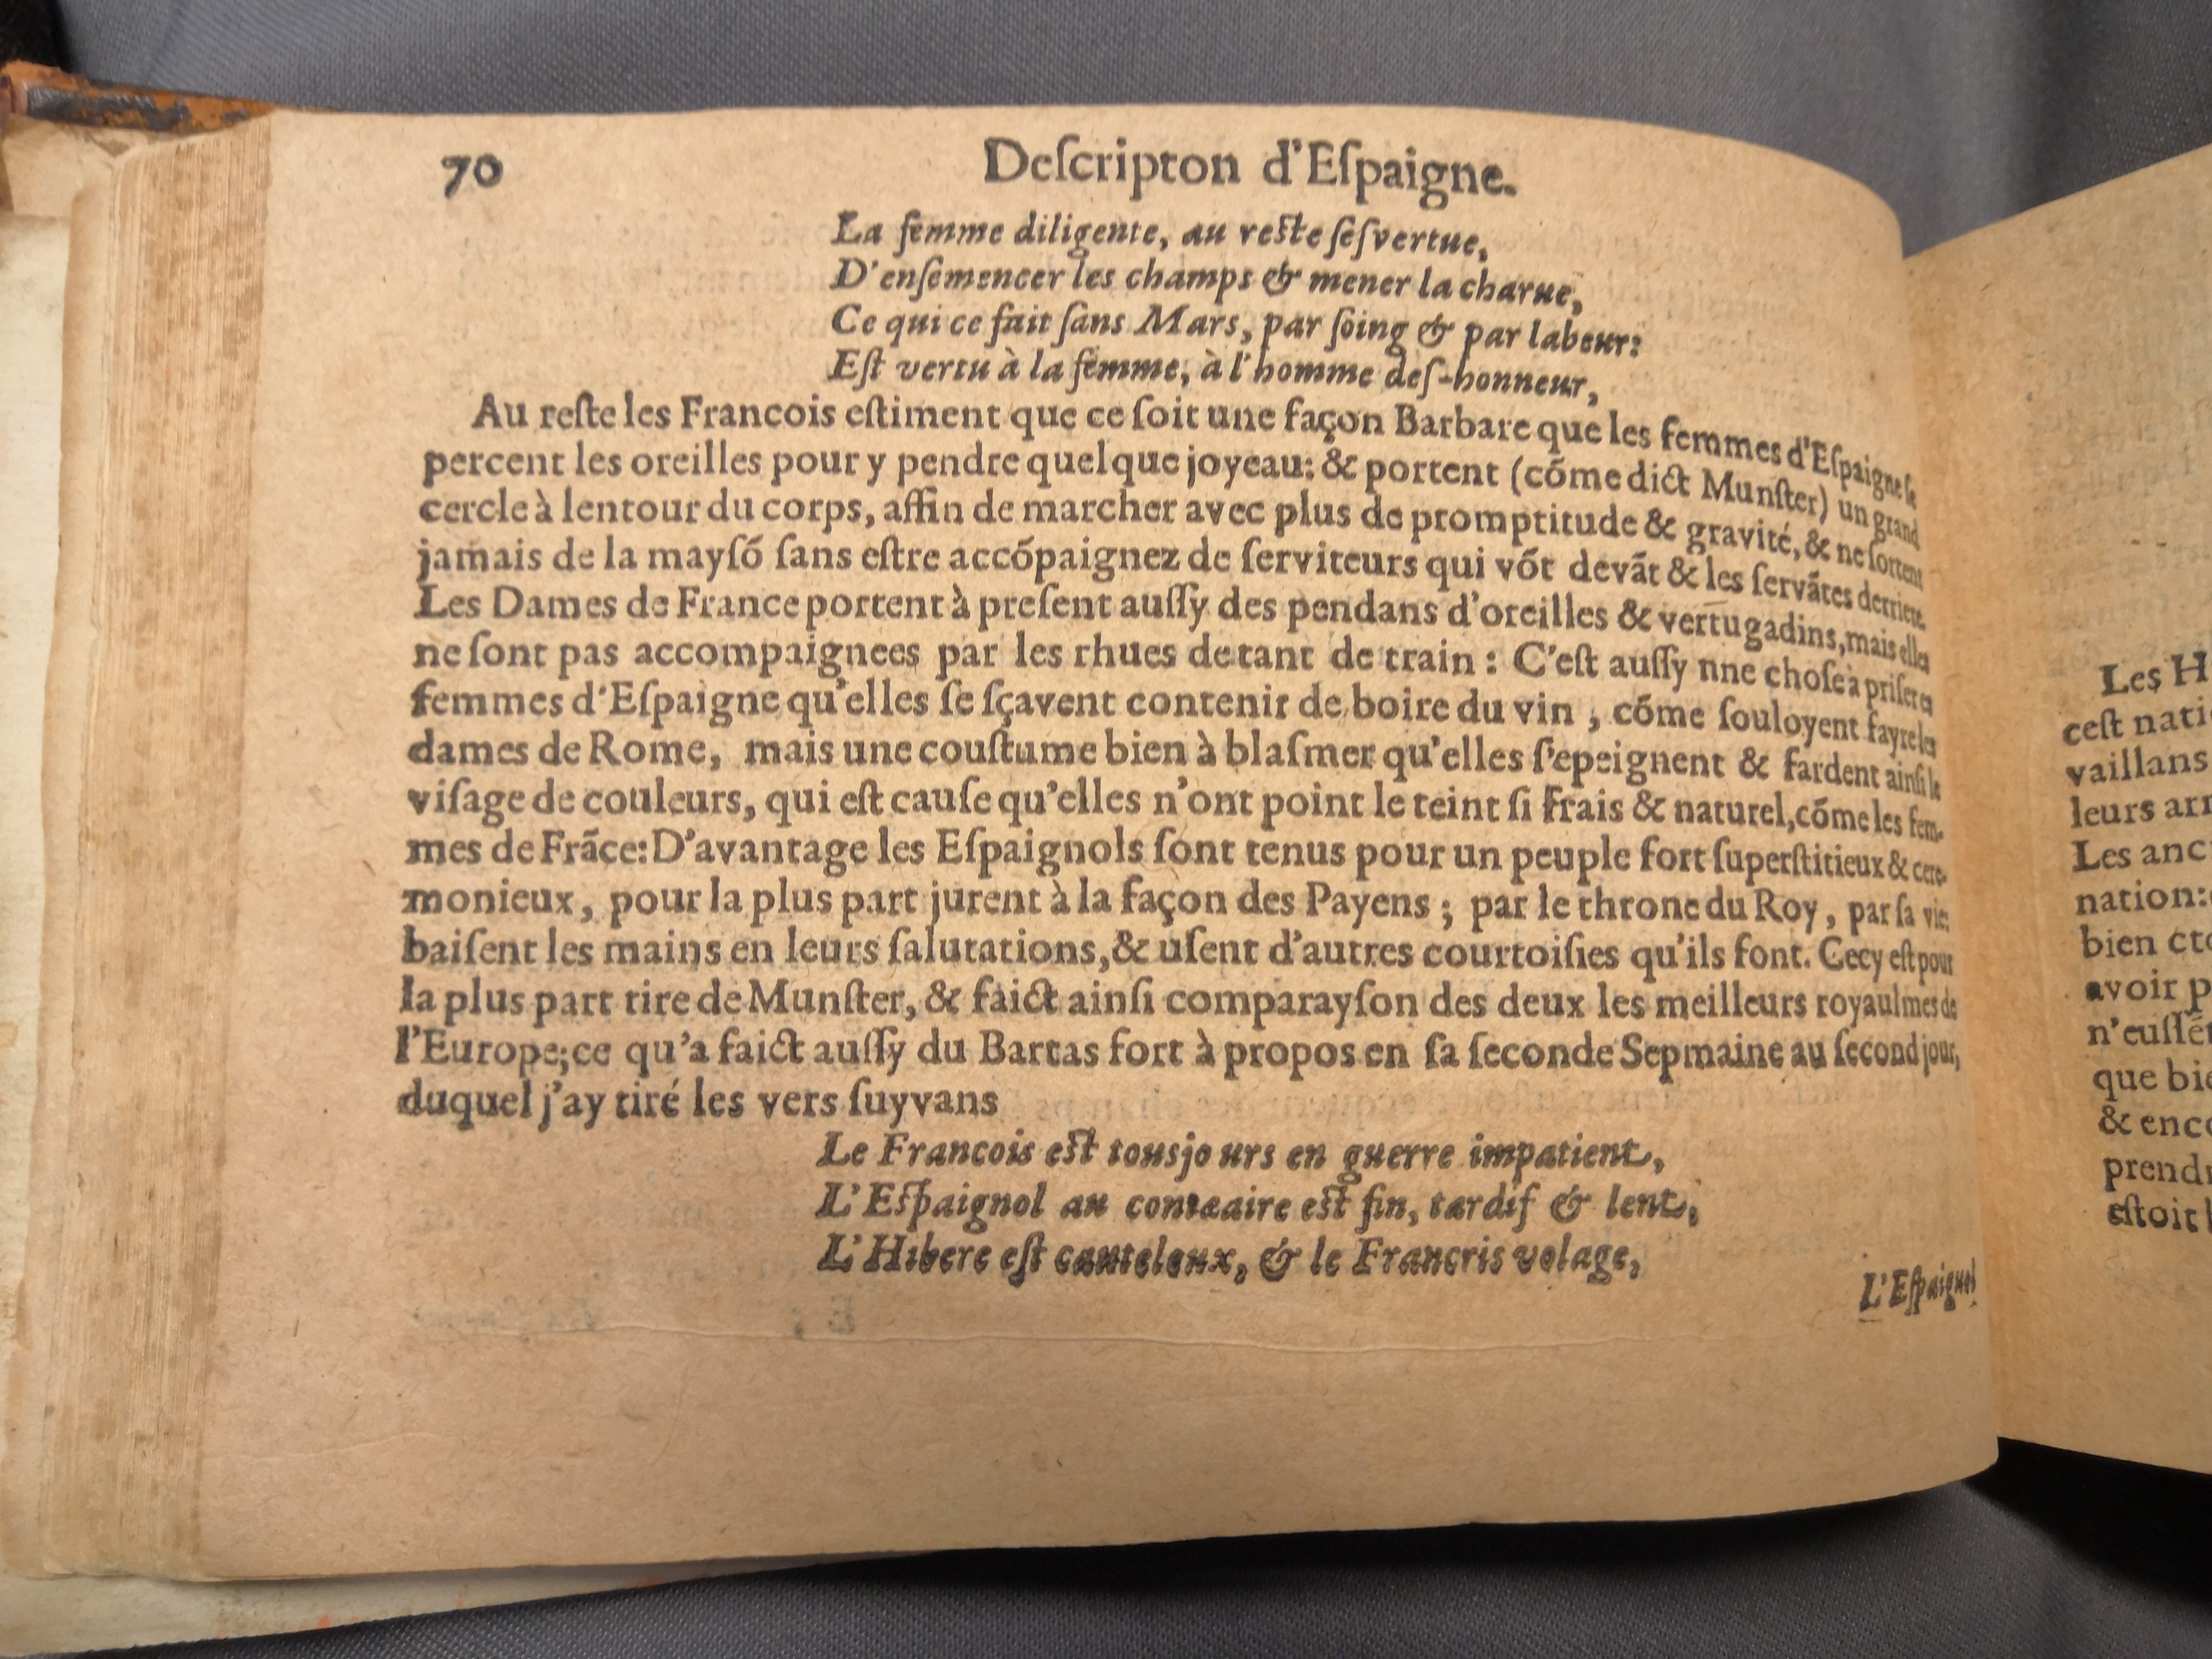 70 Deſcripton d'Eſpaigne.
La femme diligente, au reſte ſeſvertue,
D'enſemencer les champs & mener la charue,
Ce qui ce fait ſans Mars, par ſoing & par labeur:
Eſt vertu à la femme, à l'homme deſ-honneur,
Au reſte les Francois eſtiment que ce ſoit une façon Barbare que les femmes d'Eſpaigne ſe
percent les oreilles pour y pendre quelque joyeau: & portent (cõme dict Munſter) un grand
cercle à lentour du corps, affin de marcher avec plus de promptitude & gravité, & ne ſortent
jamais de la mayſõ ſans eſtre accõpaignez de ſerviteurs qui võt devãt & les ſervãtes derriere.
Les Dames de France portent à preſent auſſy des pendans d'oreilles & vertugadins, mais elles
ne ſont pas accompaignees par les rhues de tant de train: C'eſt auſſy nne choſe à priſer es
femmes d'Eſpaigne qu'elles ſe ſçavent contenir de boire du vin, cõme ſouloyent fayre les
dames de Rome, mais une couſtume bien à blaſmer qu'elles ſ'epeignent & fardent ainſi le
viſage de couleurs, qui eſt cauſe qu'elles n'ont point le teint ſi frais & naturel, cõme les fem-
mes de Frãce: D'avantage les Eſpaignols ſont tenus pour un peuple fort ſuperſtitieux & cere-
monieux, pour la plus part jurent à la façon des Payens; par le throne du Roy, par ſa vie:
baiſent les mains en leurs ſalutations, & uſent d'autres courtoiſies qu'ils font. Cecy eſt pour
la plus part tire de Munſter, & faict ainſi comparayſon des deux les meilleurs royaulmes de
l'Europe; ce qu'a faict auſſy du Bartas fort à propos en ſa ſeconde Sepmaine au ſecond jour,
duquel j'ay tiré les vers ſuyvans
Le Francois eſt tousjo urs en guerre impatient,
L'Eſpaignol au contraaire eſt fin, tardif & lent,
L'Hibere eſt cauteleux, & le Francris volage,
L'Eſpaignol
Les H
ceſt nati
vaillans
leurs arr
Les anc
nation:
bien
avoir p
n'euſſẽ
que bie
& enco
prend
eſtoit